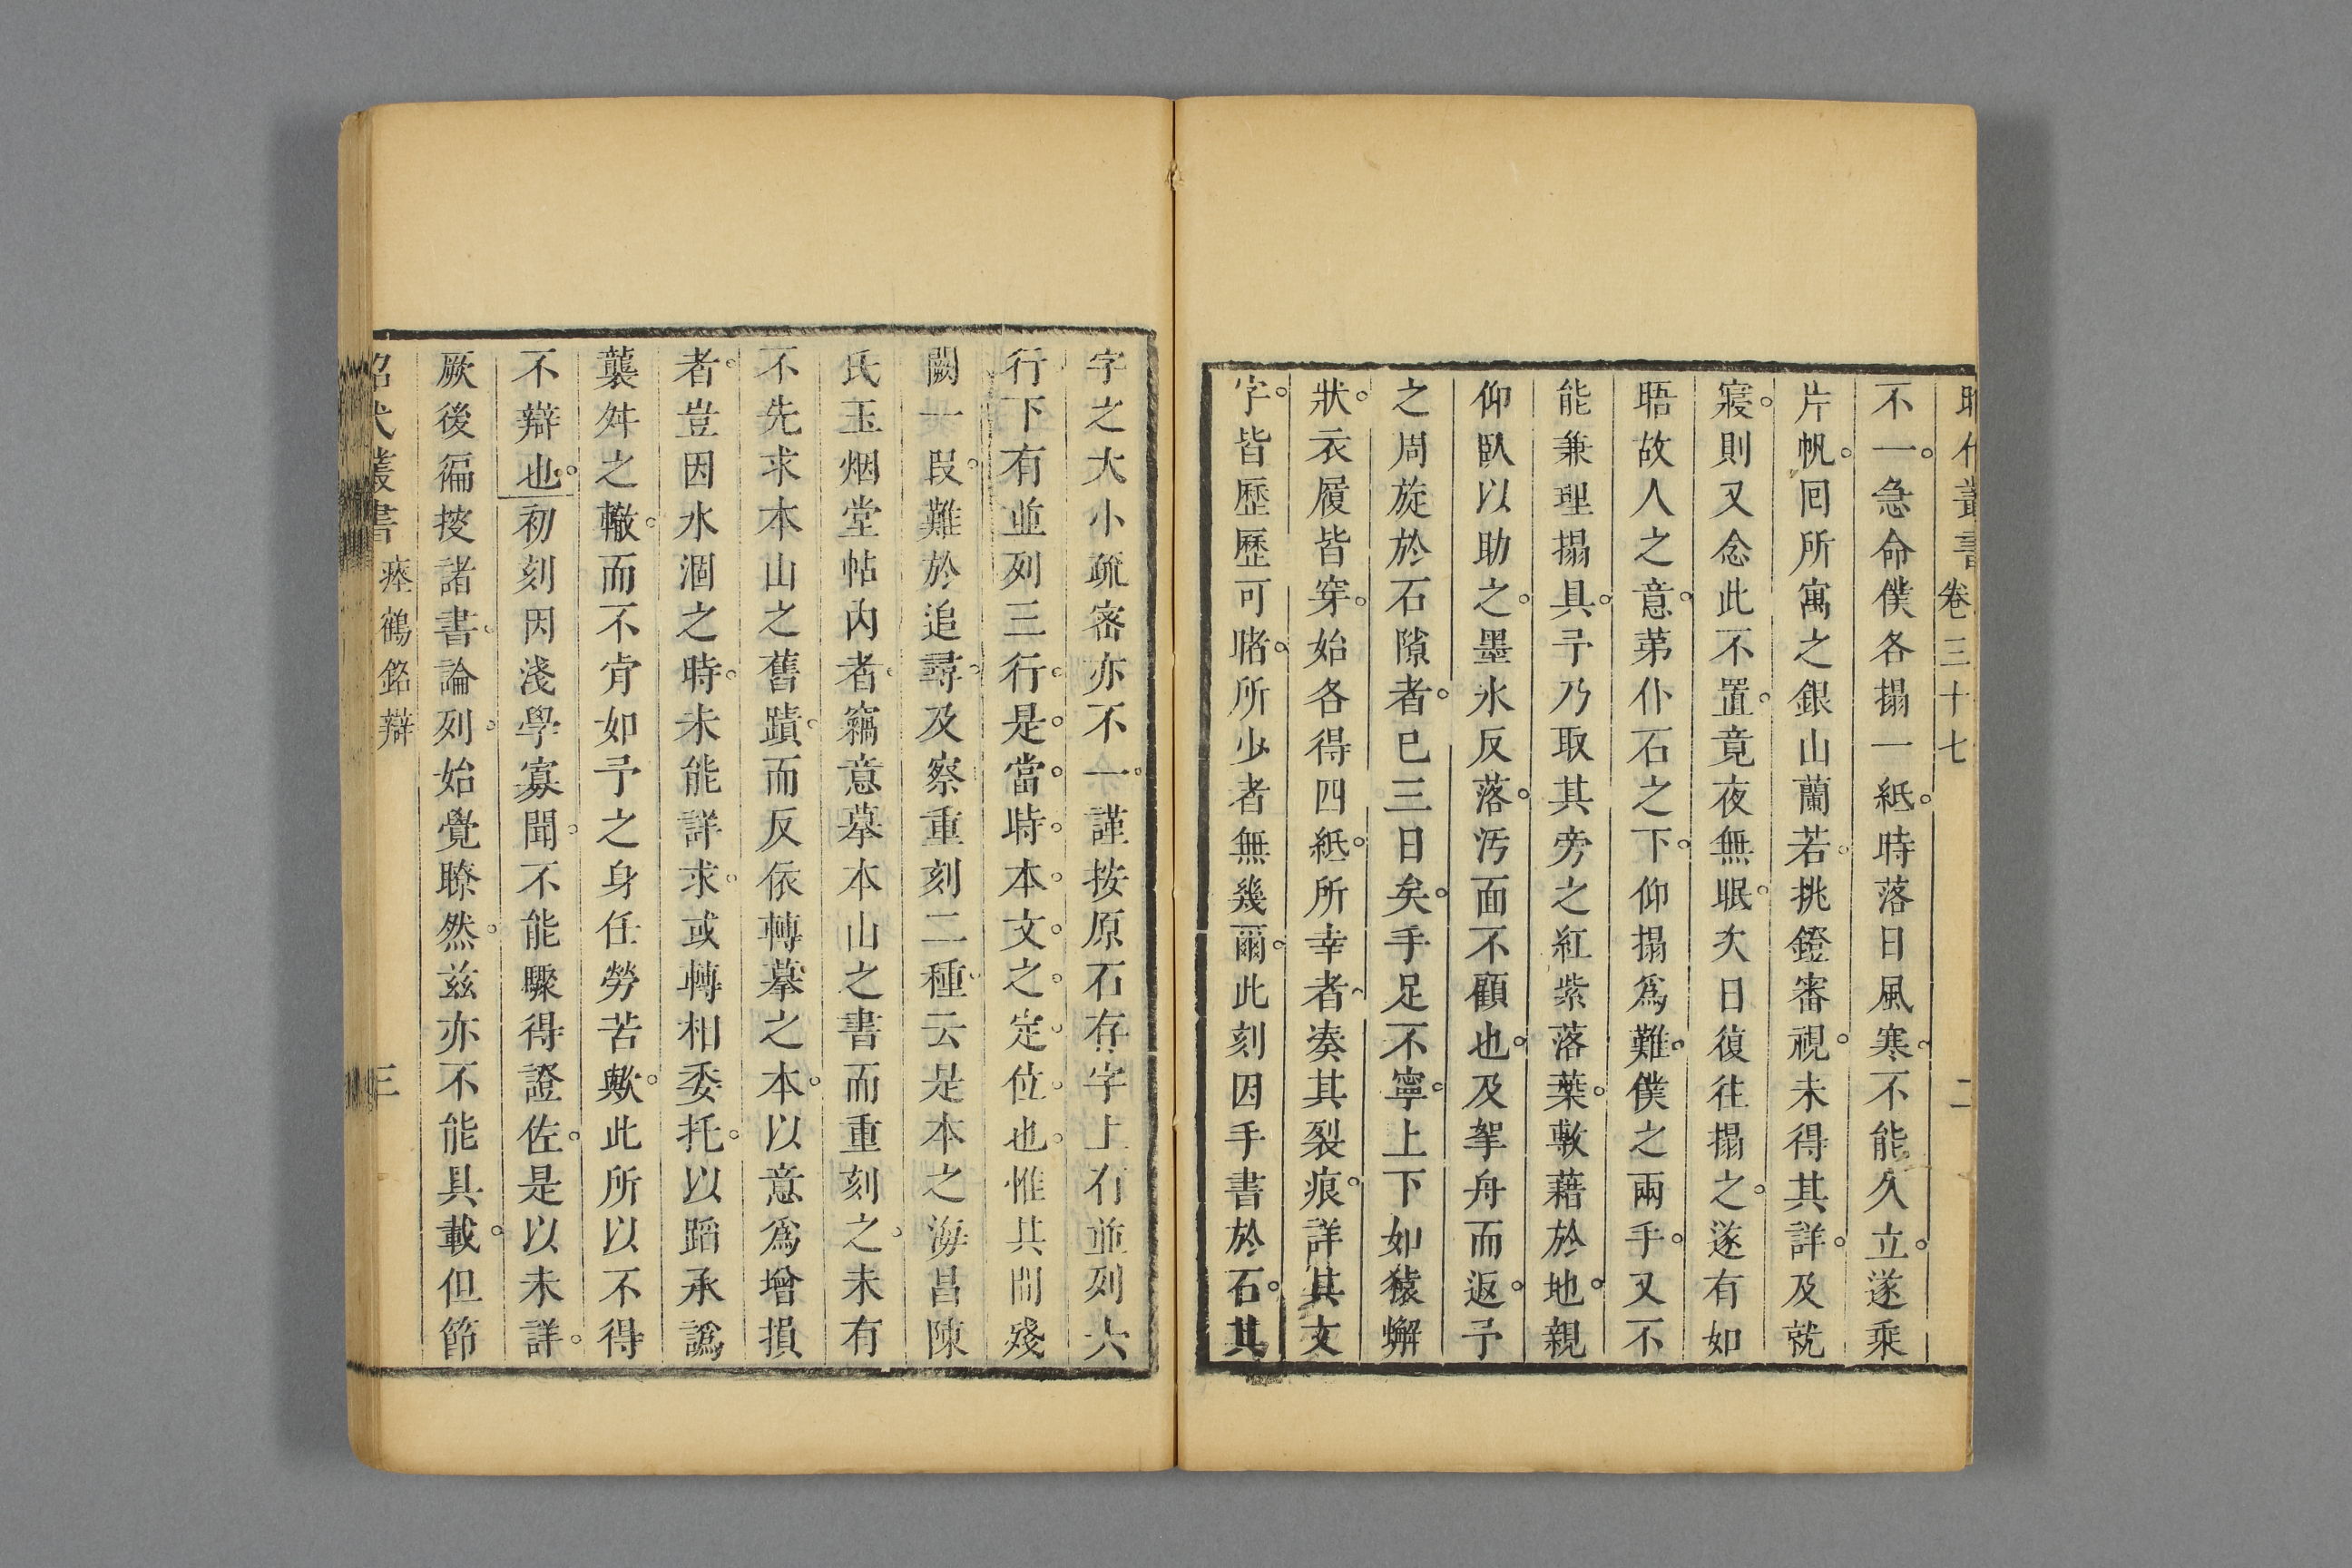 昭代叢書 卷三十七 二
不一急命僕各搨一紙時落日風寒不能久立遂乘
片帆囘所寓之銀山蘭若挑鐙審視未得其詳及就
寢則又念此不置竟夜無眠次日復往搨之遂有如
晤故人之意第仆石之下仰搨爲難僕之兩手又不
能兼理搨具予乃取其旁之紅紫落葉敷藉於地親
仰臥以助之墨水反落汚面不顧也及挐舟而返予
之周旋於石隙者已三日矣手足不寧上下如猿獬
狀衣履皆穿始各得四紙所幸者湊其裂痕詳其文
字皆歷歷可睹所少者無幾爾此刻因手書於石其
字之大小疏密亦不一謹按原石存字上有並列六
行下有並列三行是當時本文之定位也惟其間殘
闕一段難於追尋及察重刻二種云是本之海昌陳
氏玉烟堂帖內者竊意摹本山之書而重刻之未有
不先求本山之舊蹟而反依轉摹之本以意爲增損
者豈因水涸之時未能詳求或轉相委托以蹈承譌
襲舛之轍而不肯如予之身任勞苦歟此所以不得
不辯也初刻因淺學寡聞不能驟得證佐是以未詳
厥後徧披諸書論列始覺瞭然茲亦不能具載但節
昭代叢書 瘞鶴銘辯 三